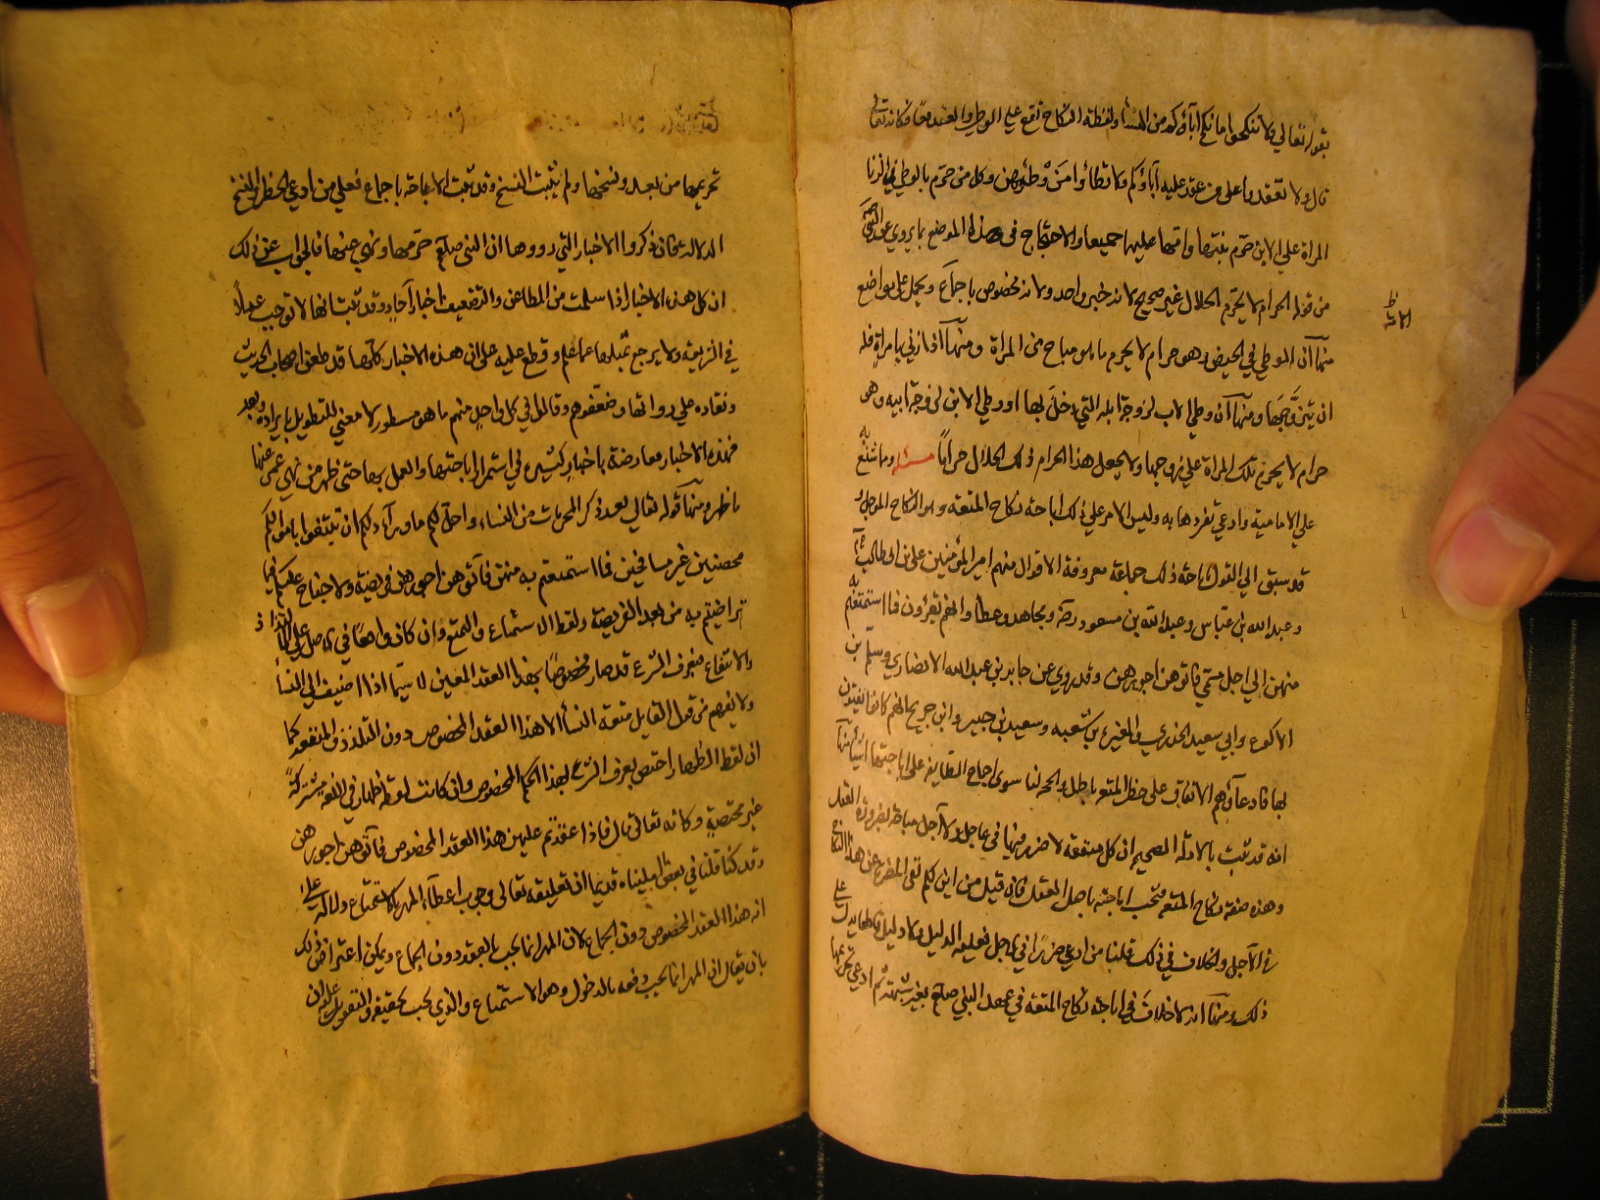 بقوله تعالي ولا تنكحوا ما نكح آباؤكم من النساء ولفظة النكاح تقع علي الوطي والعقد معا فكانه تعالى
قال ولا تعقدوا على من عقد عليه آباؤكم ولا تطاوا من وطئوهن وكل من حرّم بالوطي في الزنا
المراة علي الابن حرّم بنتها وامها عليهما جميعا والاحتجاج في هذا الموضع بما يروي عن النبي صلعم
من قوله الحرام لا يحرّم الحلال غير صحيح لانه خبر واحد ولانه مخصوص باجماع ويحمل على مواضع
منها أن الوطي في الحيض وهو حرام لا يحرم ما هو مباح من المراة ومنها اذا زني بامراة فله
ان يتزوجها ومنها ان وطي الاب لزوجة ابنه التي دخل بها او وطي الابن لزوجة ابيه وهو
حرام لا يحرم تلك المراة علي زوجها ولا يجعل هذا الحرام ذلك الحلال حراما مسئله وما شنع به
علي الامامية وادعي تفردها به وليس الامر علي ذلك اباحة نكاح المتعة وهو النكاح الموجل و
قد سبق الي القول باباحة ذلك جماعة معروفة الاقوال منهم امير المؤمنين علي بن ابي طالب
وعبد الله بن عباس وعبد الله بن مسعود ومجاهد وعطا وانهم يقرؤن فما استمتعتم به
منهن الي اجل مسمي فاتوهن اجورهن وقد روي عن جابر بن عبد الله الانصاري وسلمة بن
الاكوع وابي سعيد الخدري والمغيرة بن شعبه وسعيد بن جبير وابن جريح انهم كانوا يفتون
بها فادعاؤهم الاتفاق على حظر المتعة باطل والحجة لنا سوى اجماع الطايفة على اباحتها اشياء منها
انه قد ثبت بالادلة الصحيحة ان كل منفعة لا ضرر فيها في عاجل ولا آجل مباحة بضرورة العقل
وهذه صفة نكاح المتعة فيجب اباحته باصل العقل فان قيل من اين لكم نفي المضرة عن هذا النكاح
في الآجل والخلاف في ذلك قلنا من ادعي ضررا في الآجل فعليه الدليل ولا دليل قاطعا يدل علي
ذلك ومنها انه لا خلاف في اباحة نكاح المتعة في عهد النبي صلعم بغير شبهة ثم ادعي تحريمها
تحريمها من بعد ونسخها ولم يثبت النسخ وقد ثبتت الاباحة باجماع فعلي من ادعي الحظر والنسخ
الدلالة فان ذكروا الاخبار التي رووها ان النبي صلعم حرّمها ونهي عنها فالجواب عن ذلك
ان كل هذه الاخبار اذا سلمت من المطاعن والتضعيف اخبار آحاد وقد ثبت انها لا توجب عملا
في الشريعة ولا يرجع بمثلها عما علم وقطع عليه على ان هذه الاخبار كلها قد طعن اصحاب الحديث
ونقاده علي رواتها وضعّفوهم وقالوا في كل واحد منهم ما هو مسطور لا معني للتطويل بايراده وبعد
فهذه الاخبار معارضة باخبار كثيرة في استمرار اباحتها والعمل بها حتى ظهر من نهي عمر عنها
ما ظهر ومنها قوله تعالي بعد ذكر المحرمات من النساء واحل لكم ما وراء ذلكم ان تبتغوا باموالكم
محصنين غير مسافحين فما استمتعتم به منهن فآتوهن اجورهن فريضة ولا جناح عليكم فيما
تراضيتم به من بعد الفريضة ولفظ الاستمتاع والتمتع وان كان واقعا في الاصل علي الالتذاذ
والانتفاع فبعرف الشرع قد صار مخصوصا بهذا العقد المعين لا سيما اذا اضيف الي النساء
ولا يفهم من قول القايل متعة النساء الا هذا العقد المخصوص دون التلذذ والمنفعة كما
ان لفظ الظهار اختص بعرف الشرع لهذا الحكم المخصوص وان كانت لفظة ظهار في اللغة مشتركة
غير مختصة وكانه تعالى قال فاذا عقدتم عليهن هذا العقد المخصوص فآتوهن اجورهن
وقد كنا قلنا في بعض امليناه قديما ان تعليقه تعالى وجوب اعطاء المهر بالاستمتاع دلالة علي
انه هذا العقد المخصوص دون الجماع لان المهر انما يجب بالعقد دون الجماع ويمكن اعتراض ذلك
بان يقال ان المهر انما يجب دفعه بالدخول وهو الاستمتاع والذي يجب تحقيقه والتعويل عليه ان